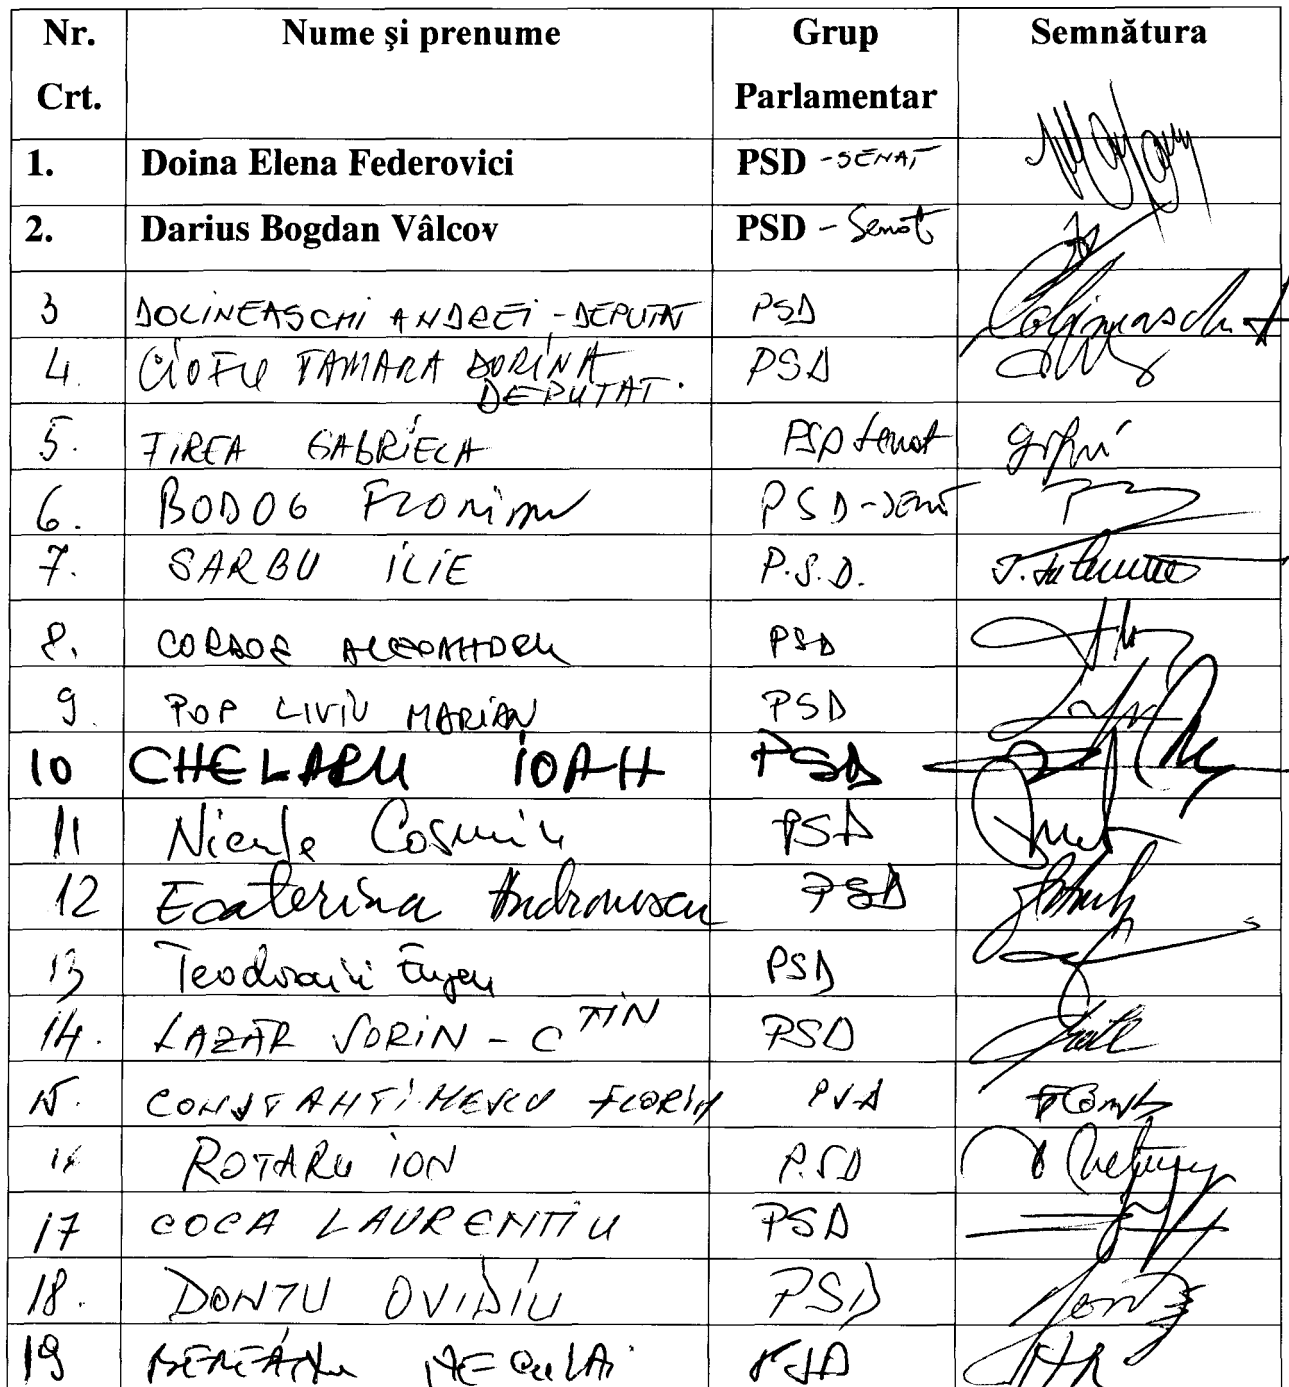 Nr. Crt. Nume şi prenume Grup Parlamentar Semnătura
1. Doina Elena Federovici PSD - SENAT
2. Darius Bogdan Vâlcov PSD - Senat
3 DOLINEASCHI ANDREI - DEPUTAT PSD
4. CIOFU TAMARA DORINA DEPUTAT. PSD
5. FIREA GABRIELA PSD Senat
6. BODOG Florian PSD - Senat
7. SARBU ILIE P.S.D.
8. CORDOS ALEXANDRU PSD
9. POP LIVIU MARIAN PSD
10 CHELARU IOAN PSD
11 Nicula Cosmin PSD
12 Ecaterina Andronescu PSD
13 Teodorovici Eugen PSD
14. LAZĂR SORIN - C TIN PSD
15. CONSTANTINESCU FLORIN PSD
16 ROTARU ION P.SD
17 COCA LAURENTIU PSD
18. DONTU OVIDIU PSD
19 NECULAI PSD